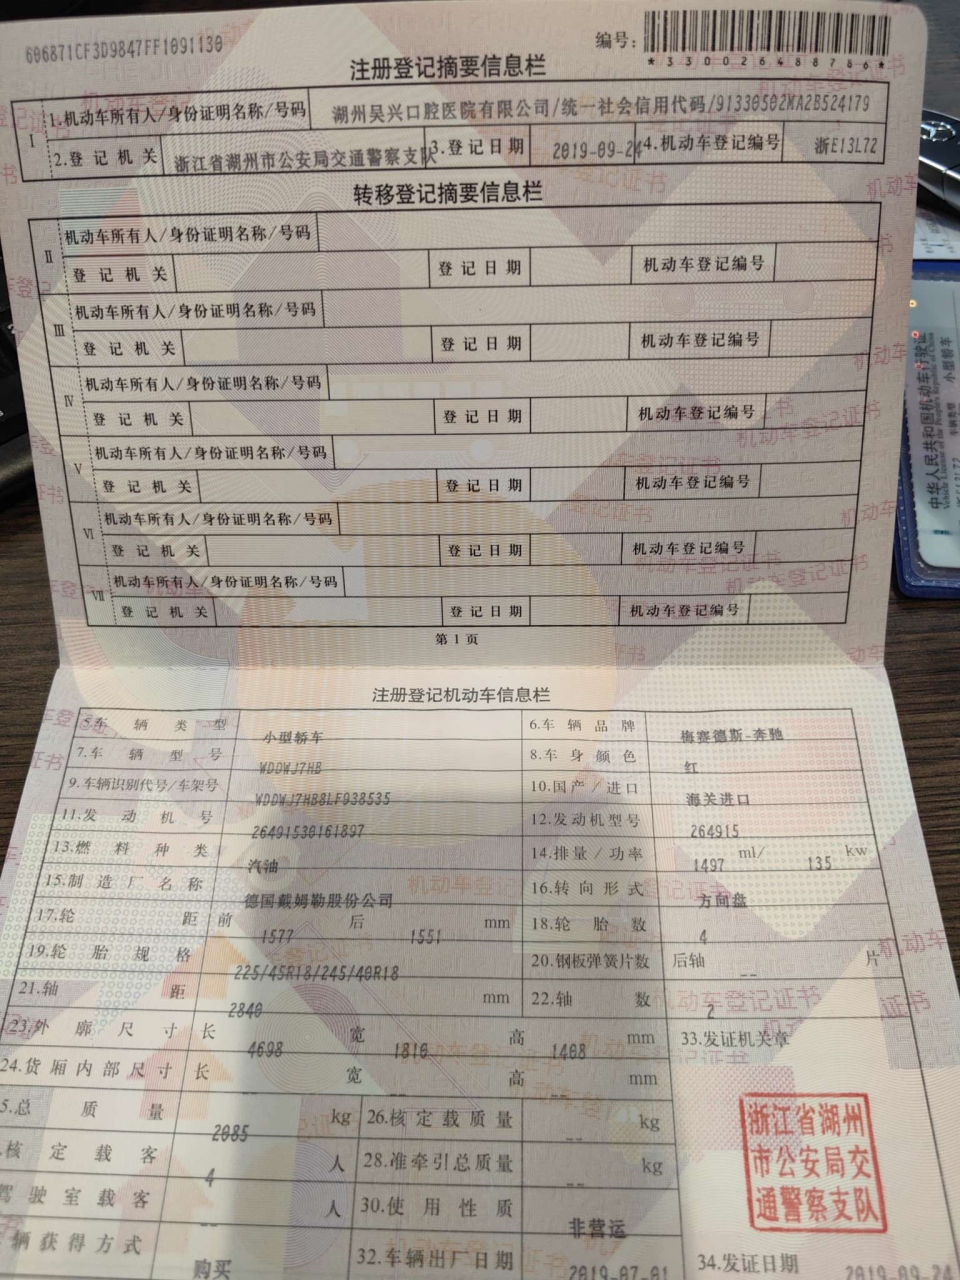 606871CF3D9847FF1091130
编号:
*330026488786*
注册登记摘要信息栏
I
1.机动车所有人/身份证明名称/号码 湖州吴兴口腔医院有限公司/统一社会信用代码/91330502MA2B524179
2.登记机关 浙江省湖州市公安局交通警察支队 3.登记日期 2019-09-24 4.机动车登记编号 浙E13L72
转移登记摘要信息栏
II
机动车所有人/身份证明名称/号码
登记机关 登记日期 机动车登记编号
III
机动车所有人/身份证明名称/号码
登记机关 登记日期 机动车登记编号
IV
机动车所有人/身份证明名称/号码
登记机关 登记日期 机动车登记编号
V
机动车所有人/身份证明名称/号码
登记机关 登记日期 机动车登记编号
VI
机动车所有人/身份证明名称/号码
登记机关 登记日期 机动车登记编号
VII
机动车所有人/身份证明名称/号码
登记机关 登记日期 机动车登记编号
第1页
注册登记机动车信息栏
5.车辆类型 小型轿车 6.车辆品牌 梅赛德斯-奔驰
7.车辆型号 WDDWJ7HB 8.车身颜色 红
9.车辆识别代号/车架号 WDDWJ7HB8LF938535 10.国产/进口 海关进口
11.发动机号 26491530161897 12.发动机型号 264915
13.燃料种类 汽油 14.排量/功率 1497 ml/ 135 kw
15.制造厂名称 德国戴姆勒股份公司 16.转向形式 方向盘
17.轮距 前 1577 后 1551 mm 18.轮胎数 4
19.轮胎规格 225/45R18/245/40R18 20.钢板弹簧片数 后轴 -- 片
21.轴距 2840 mm 22.轴数 2
23.外廓尺寸 长 4698 宽 1810 高 1408 mm 33.发证机关章
24.货厢内部尺寸 长 -- 宽 -- 高 -- mm
5.总质量 2085 kg 26.核定载质量 -- kg
.核定载客 4 人 28.准牵引总质量 -- kg
驾驶室载客 -- 人 30.使用性质 非营运
辆获得方式 购买 32.车辆出厂日期 2019-07-01 34.发证日期 2019-09-24
浙江省湖州
市公安局交
通警察支队
中华人民共和国机动车行驶证
小型轿车